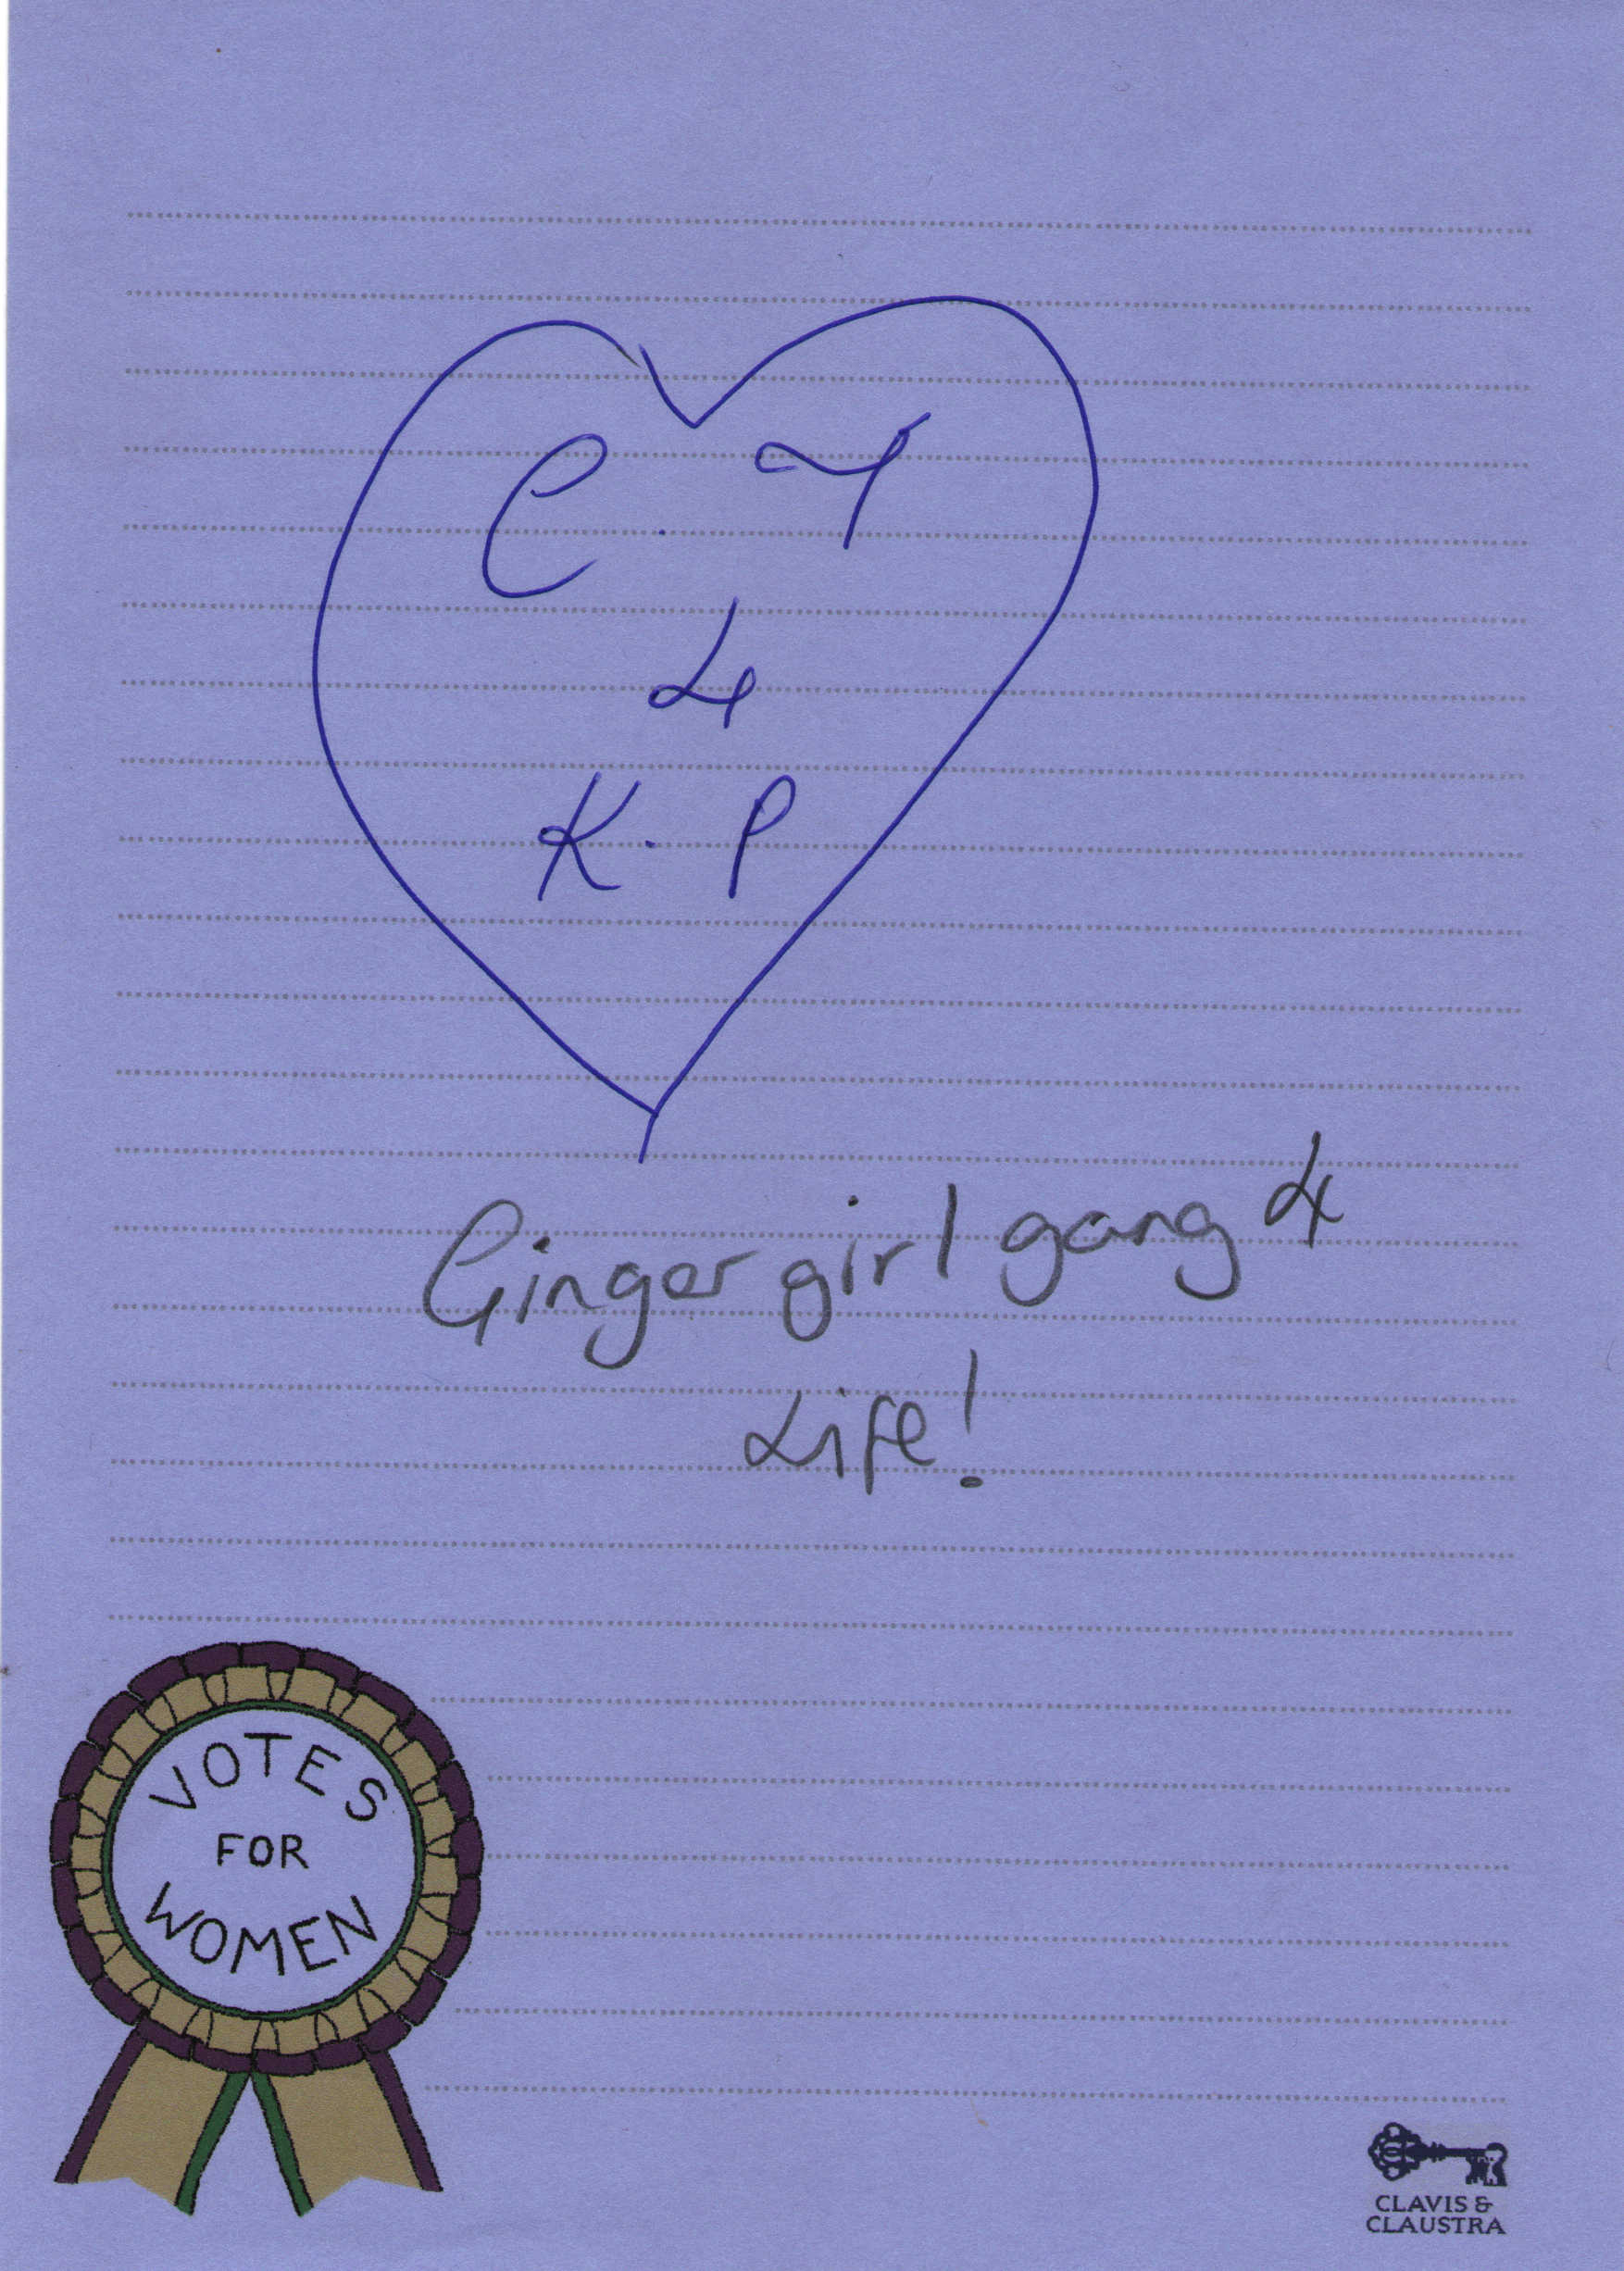 C. T
4
K. P
Ginger girl gang 4
Life!
VOTES
FOR
WOMEN
CLAVIS &
CLAUSTRA